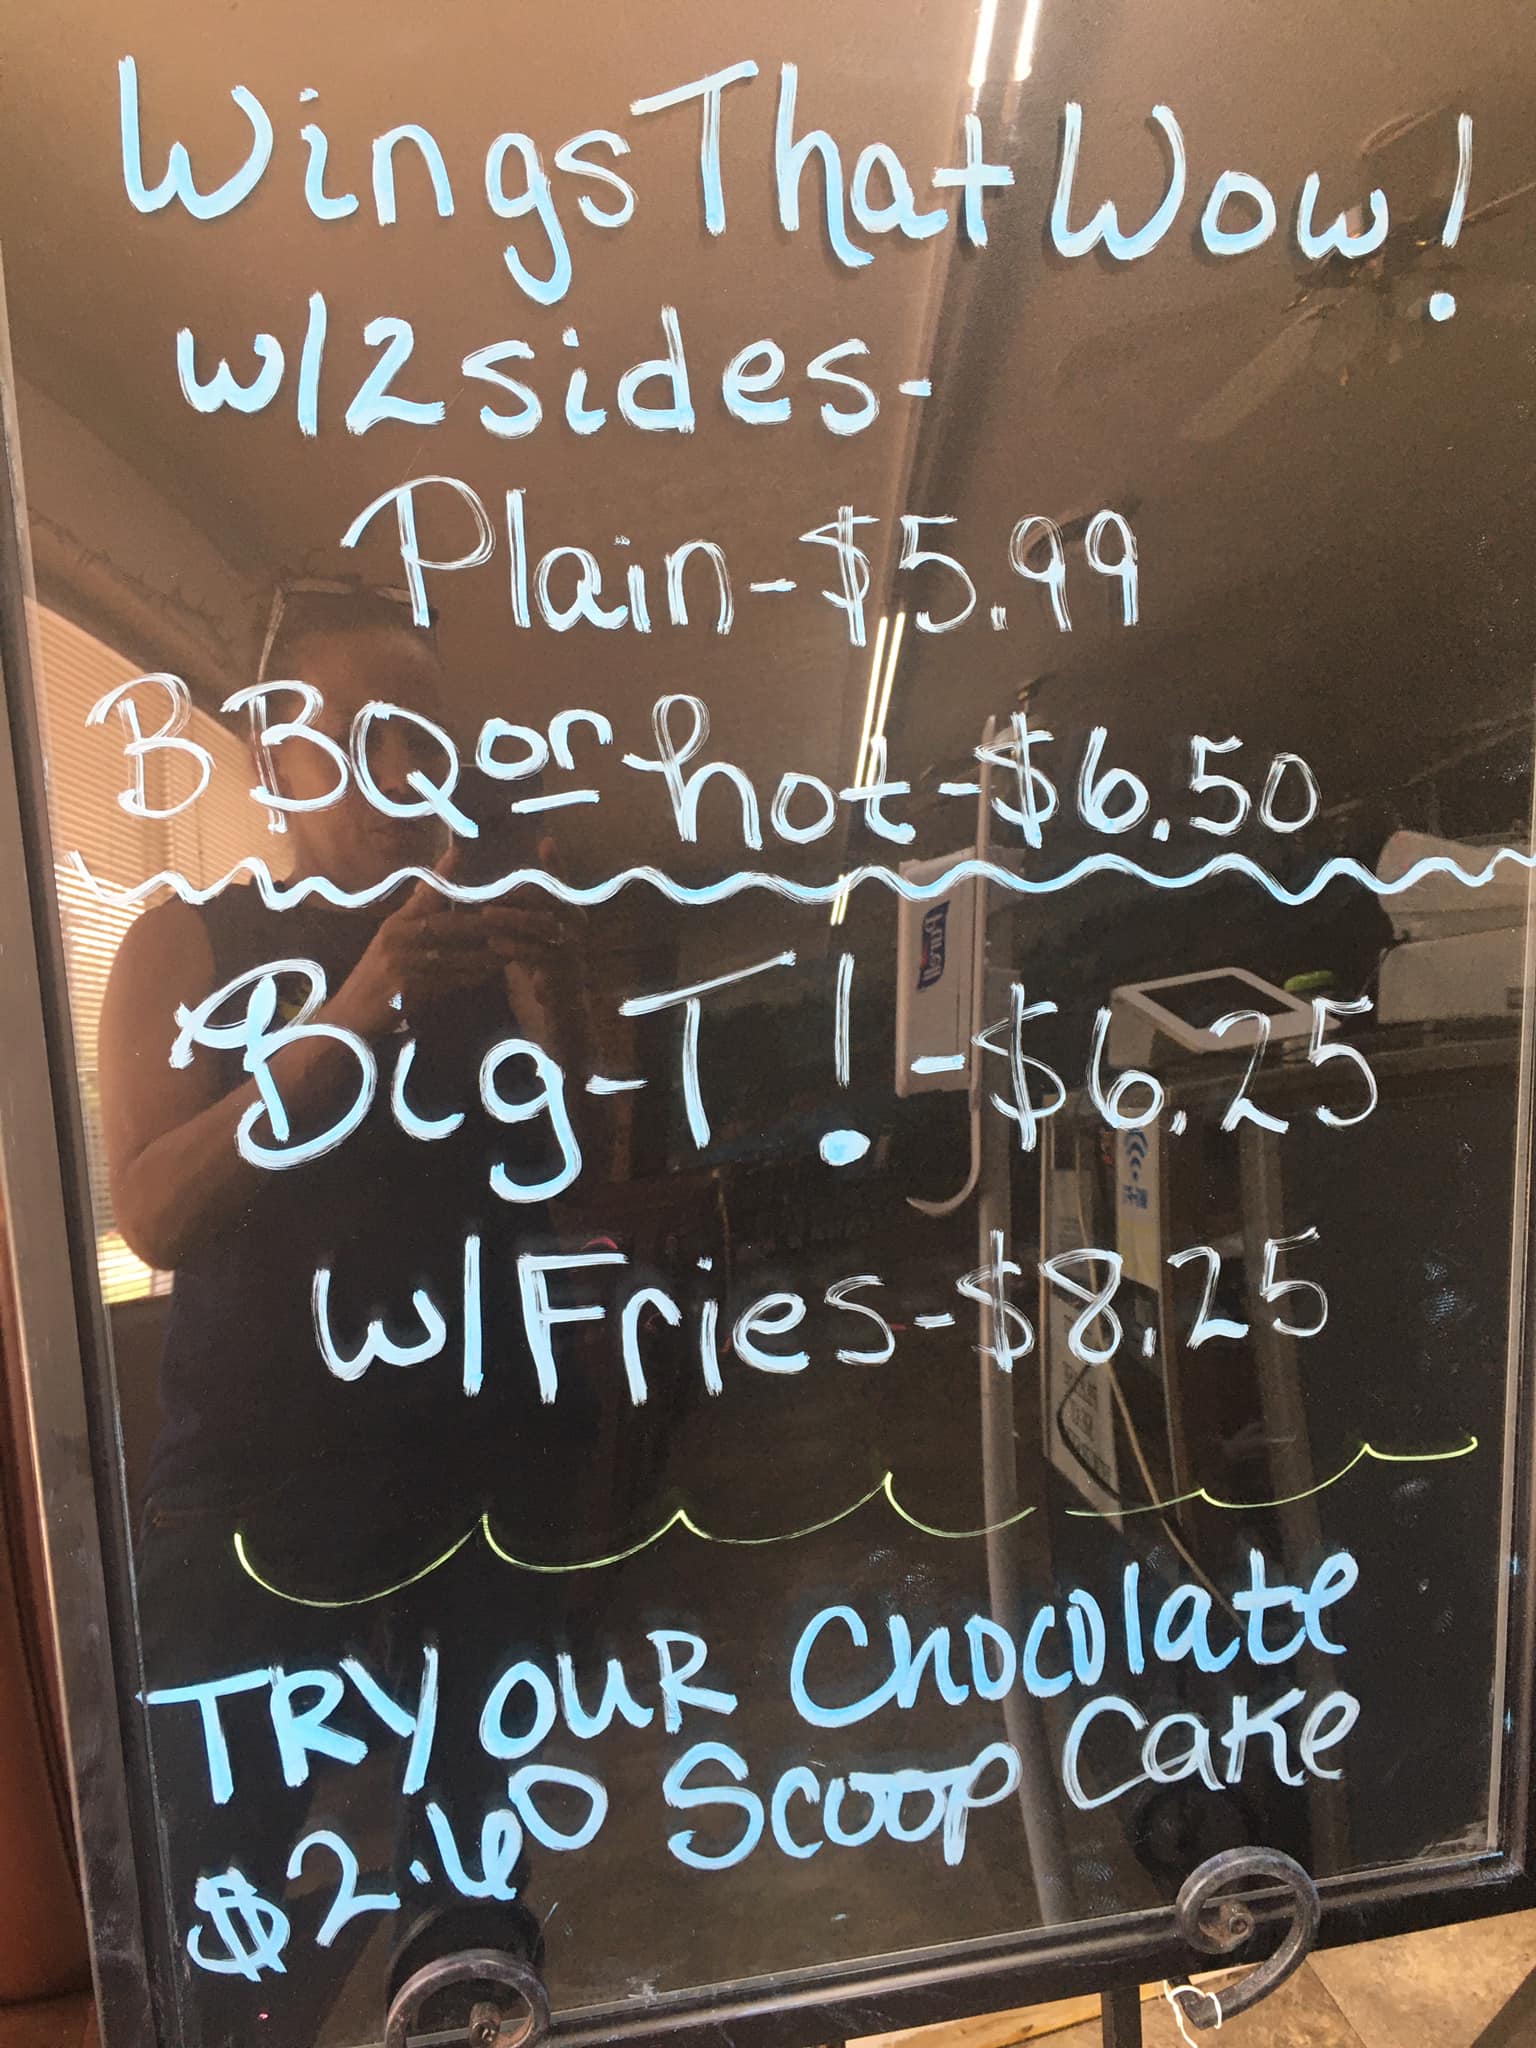 Wings That Wow!
w/2 sides-
Plain-$5.99
BBQ or hot-$6.50
Big-T!-$6.25
w/Fries-$8.25
TRY OUR Chocolate
$2.60 Scoop Cake
Purell